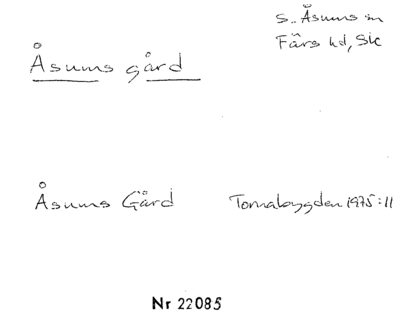 S. Åsums sn
Färs hd, Sk
Åsums gård
Åsums Gård Tornabygden 1975:11
Nr 22085